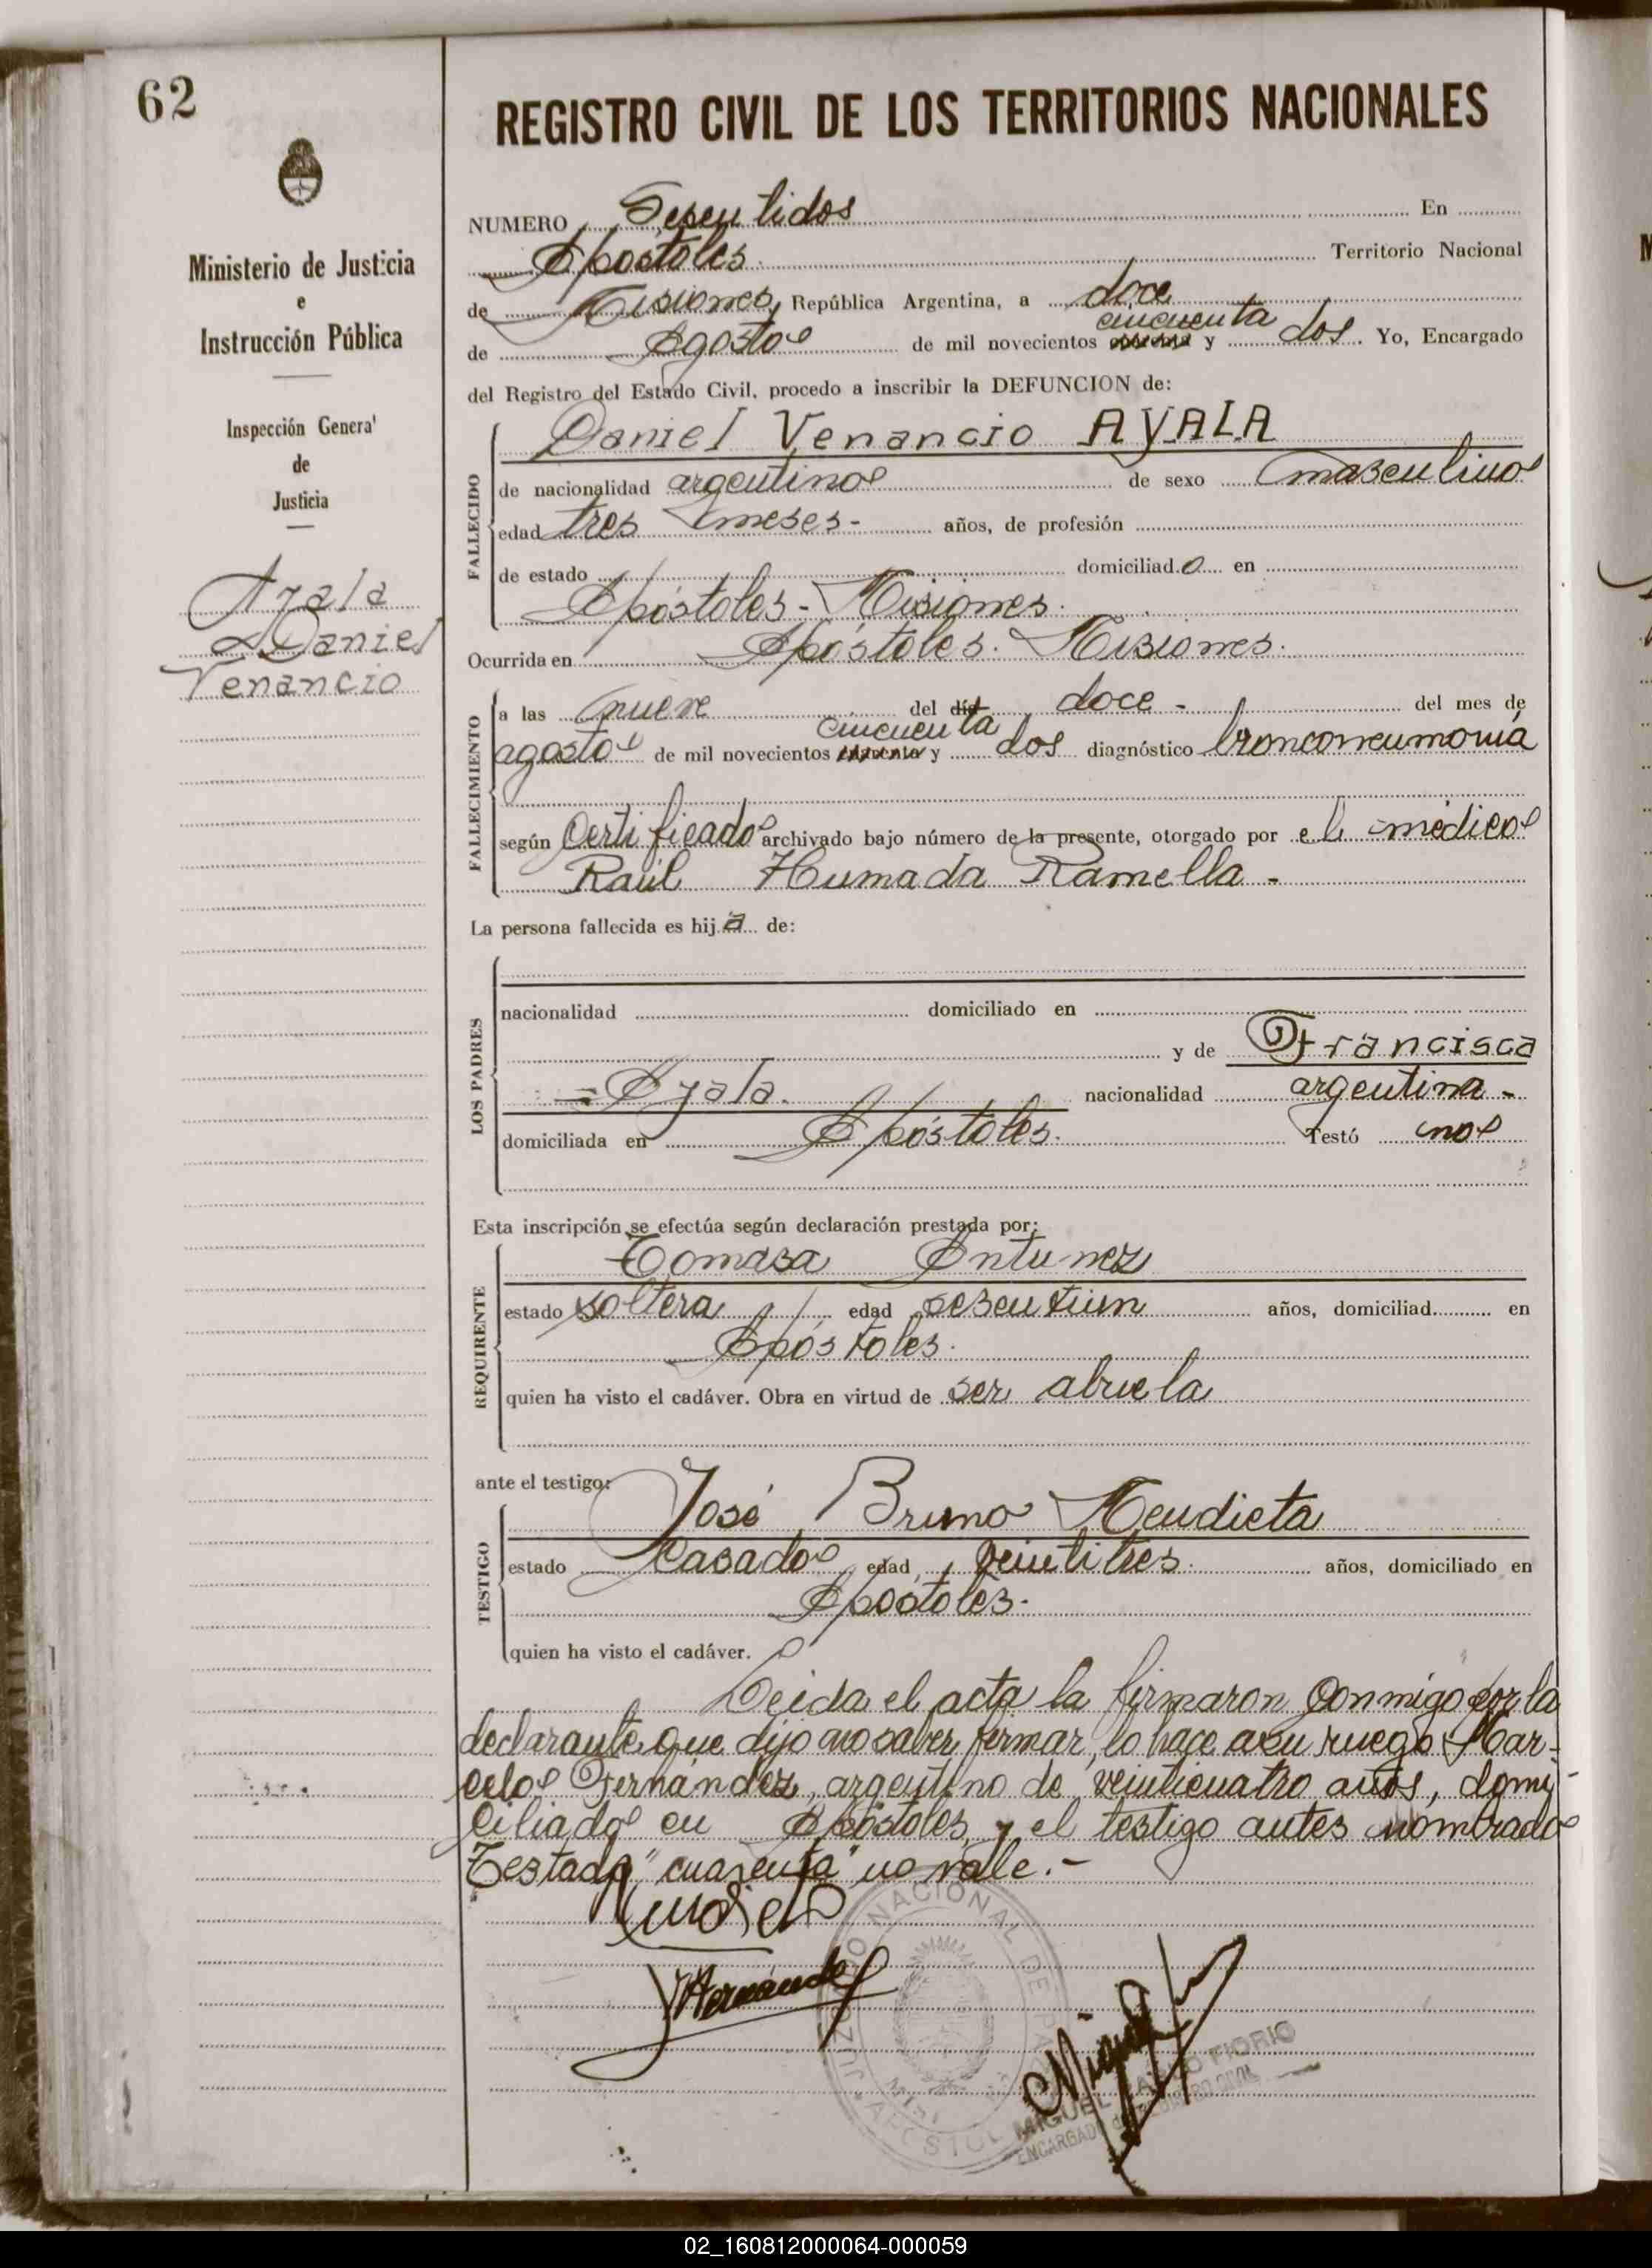 62
Ministerio de Justicia
e
Instrucción Pública
Inspección Genera'
de
Justicia
Ayala
Daniel
Venancio
REGISTRO CIVIL DE LOS TERRITORIOS NACIONALES
NUMERO Sesentidos En
Apóstoles. Territorio Nacional
de Misiones, República Argentina, a doce
cincuenta
de Agosto de mil novecientos y dos. Yo, Encargado
del Registro del Estado Civil, procedo a inscribir la DEFUNCION de:
FALLECIDO
Daniel Venancio AYALA
de nacionalidad argentino de sexo masculino
edad tres meses - años, de profesión
de estado domiciliad o en
Apóstoles - Misiones.
Ocurrida en Apóstoles. Misiones.
FALLECIMIENTO
a las nueve del día doce - del mes de
cincuenta
agosto de mil novecientos cuarenta y dos diagnóstico bronconeumonia
según Certificado archivado bajo número de la presente, otorgado por el médico
Raúl Humada Ramella -
La persona fallecida es hij a de:
LOS PADRES
nacionalidad domiciliado en
y de Francisca
= Ayala. nacionalidad argentina -
domiciliada en Apóstoles. Testó no
Esta inscripción se efectúa según declaración prestada por:
REQUIRENTE
Tomasa Antunez
estado soltera edad sesentiún años, domiciliad en
Apóstoles.
quien ha visto el cadáver. Obra en virtud de ser abuela
ante el testigo:
TESTIGO
José Bruno Mendieta
estado Casado edad veintitres. años, domiciliado en
Apóstoles.
quien ha visto el cadáver.
Leida el acta la firmaron conmigo por la
declarante que dijo no saber firmar, lo hace a su ruego Mar-
celo Fernández, argentino de veinticuatro años, domi-
ciliado en Apóstoles y el testigo antes nombrado
Testado "cuarenta" no vale. -
MIGUEL FIORIO
ENCARGADO REGISTRO CIVIL
02_160812000064-000059